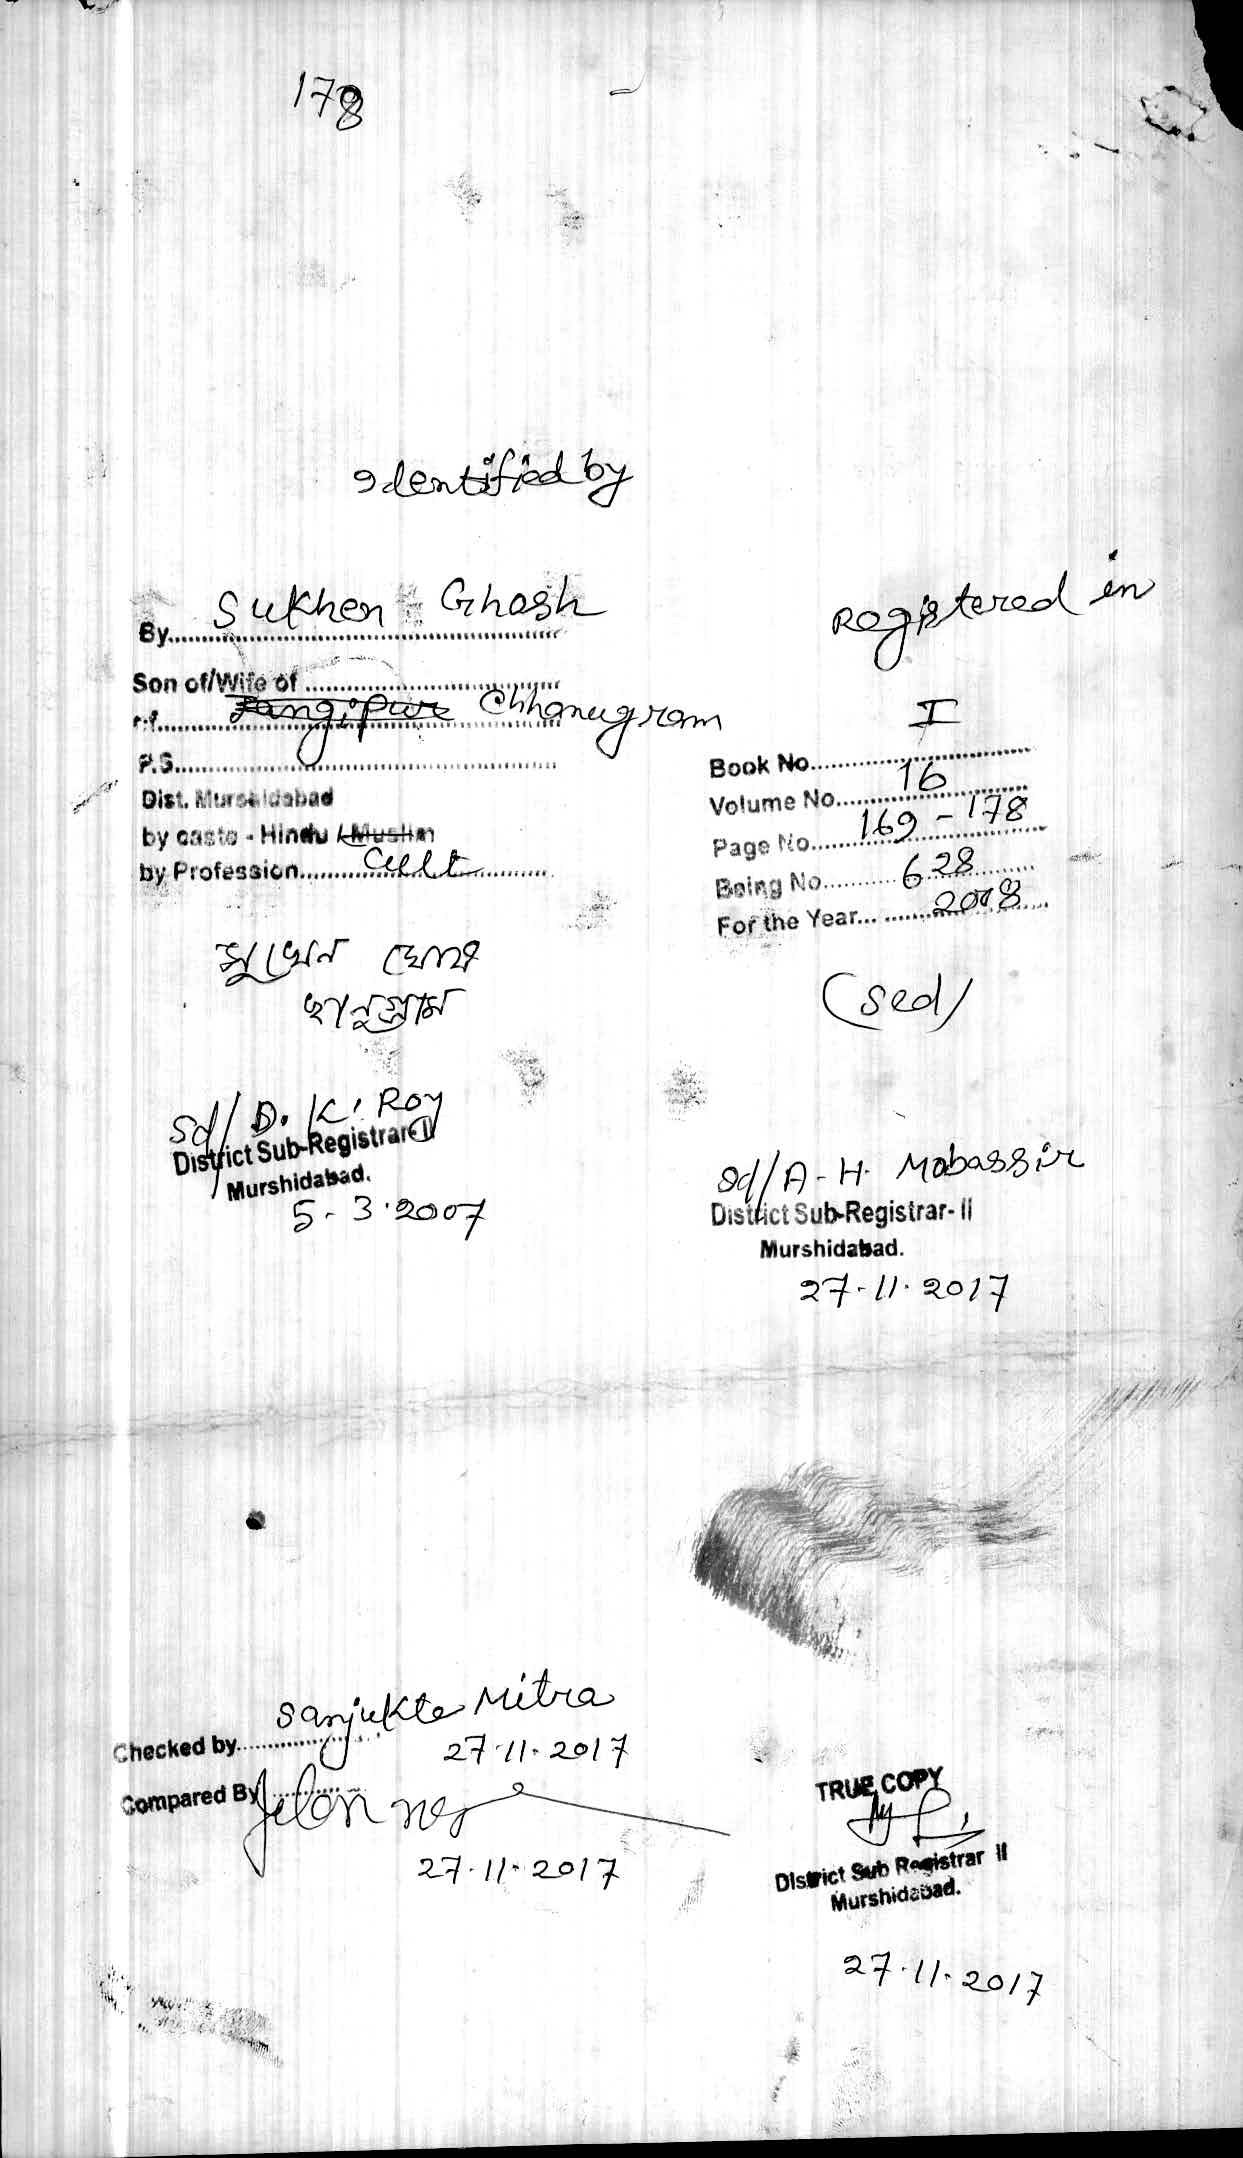 178
Identified by
By Sukhen Ghosh
Son of/Wife of
r.f. Jangipur Chhanugram
P.S.
Dist. Murshidabad
by caste - Hindu / Muslim
by Profession Cult
সুখেন ঘোষ
ছানুগ্রাম
Sd/ D. K. Roy
District Sub-Registrar-II
Murshidabad.
5-3-2007
Registered in
Book No. I
Volume No. 16
Page No. 169 - 178
Being No. 628
For the Year 2008
(Sed/
Sd/ A-H. Mobassir
District Sub-Registrar-II
Murshidabad.
27-11-2017
Checked by Sanjukta Mitra
27-11-2017
Compared By
27-11-2017
TRUE COPY
District Sub Registrar II
Murshidabad.
27-11-2017